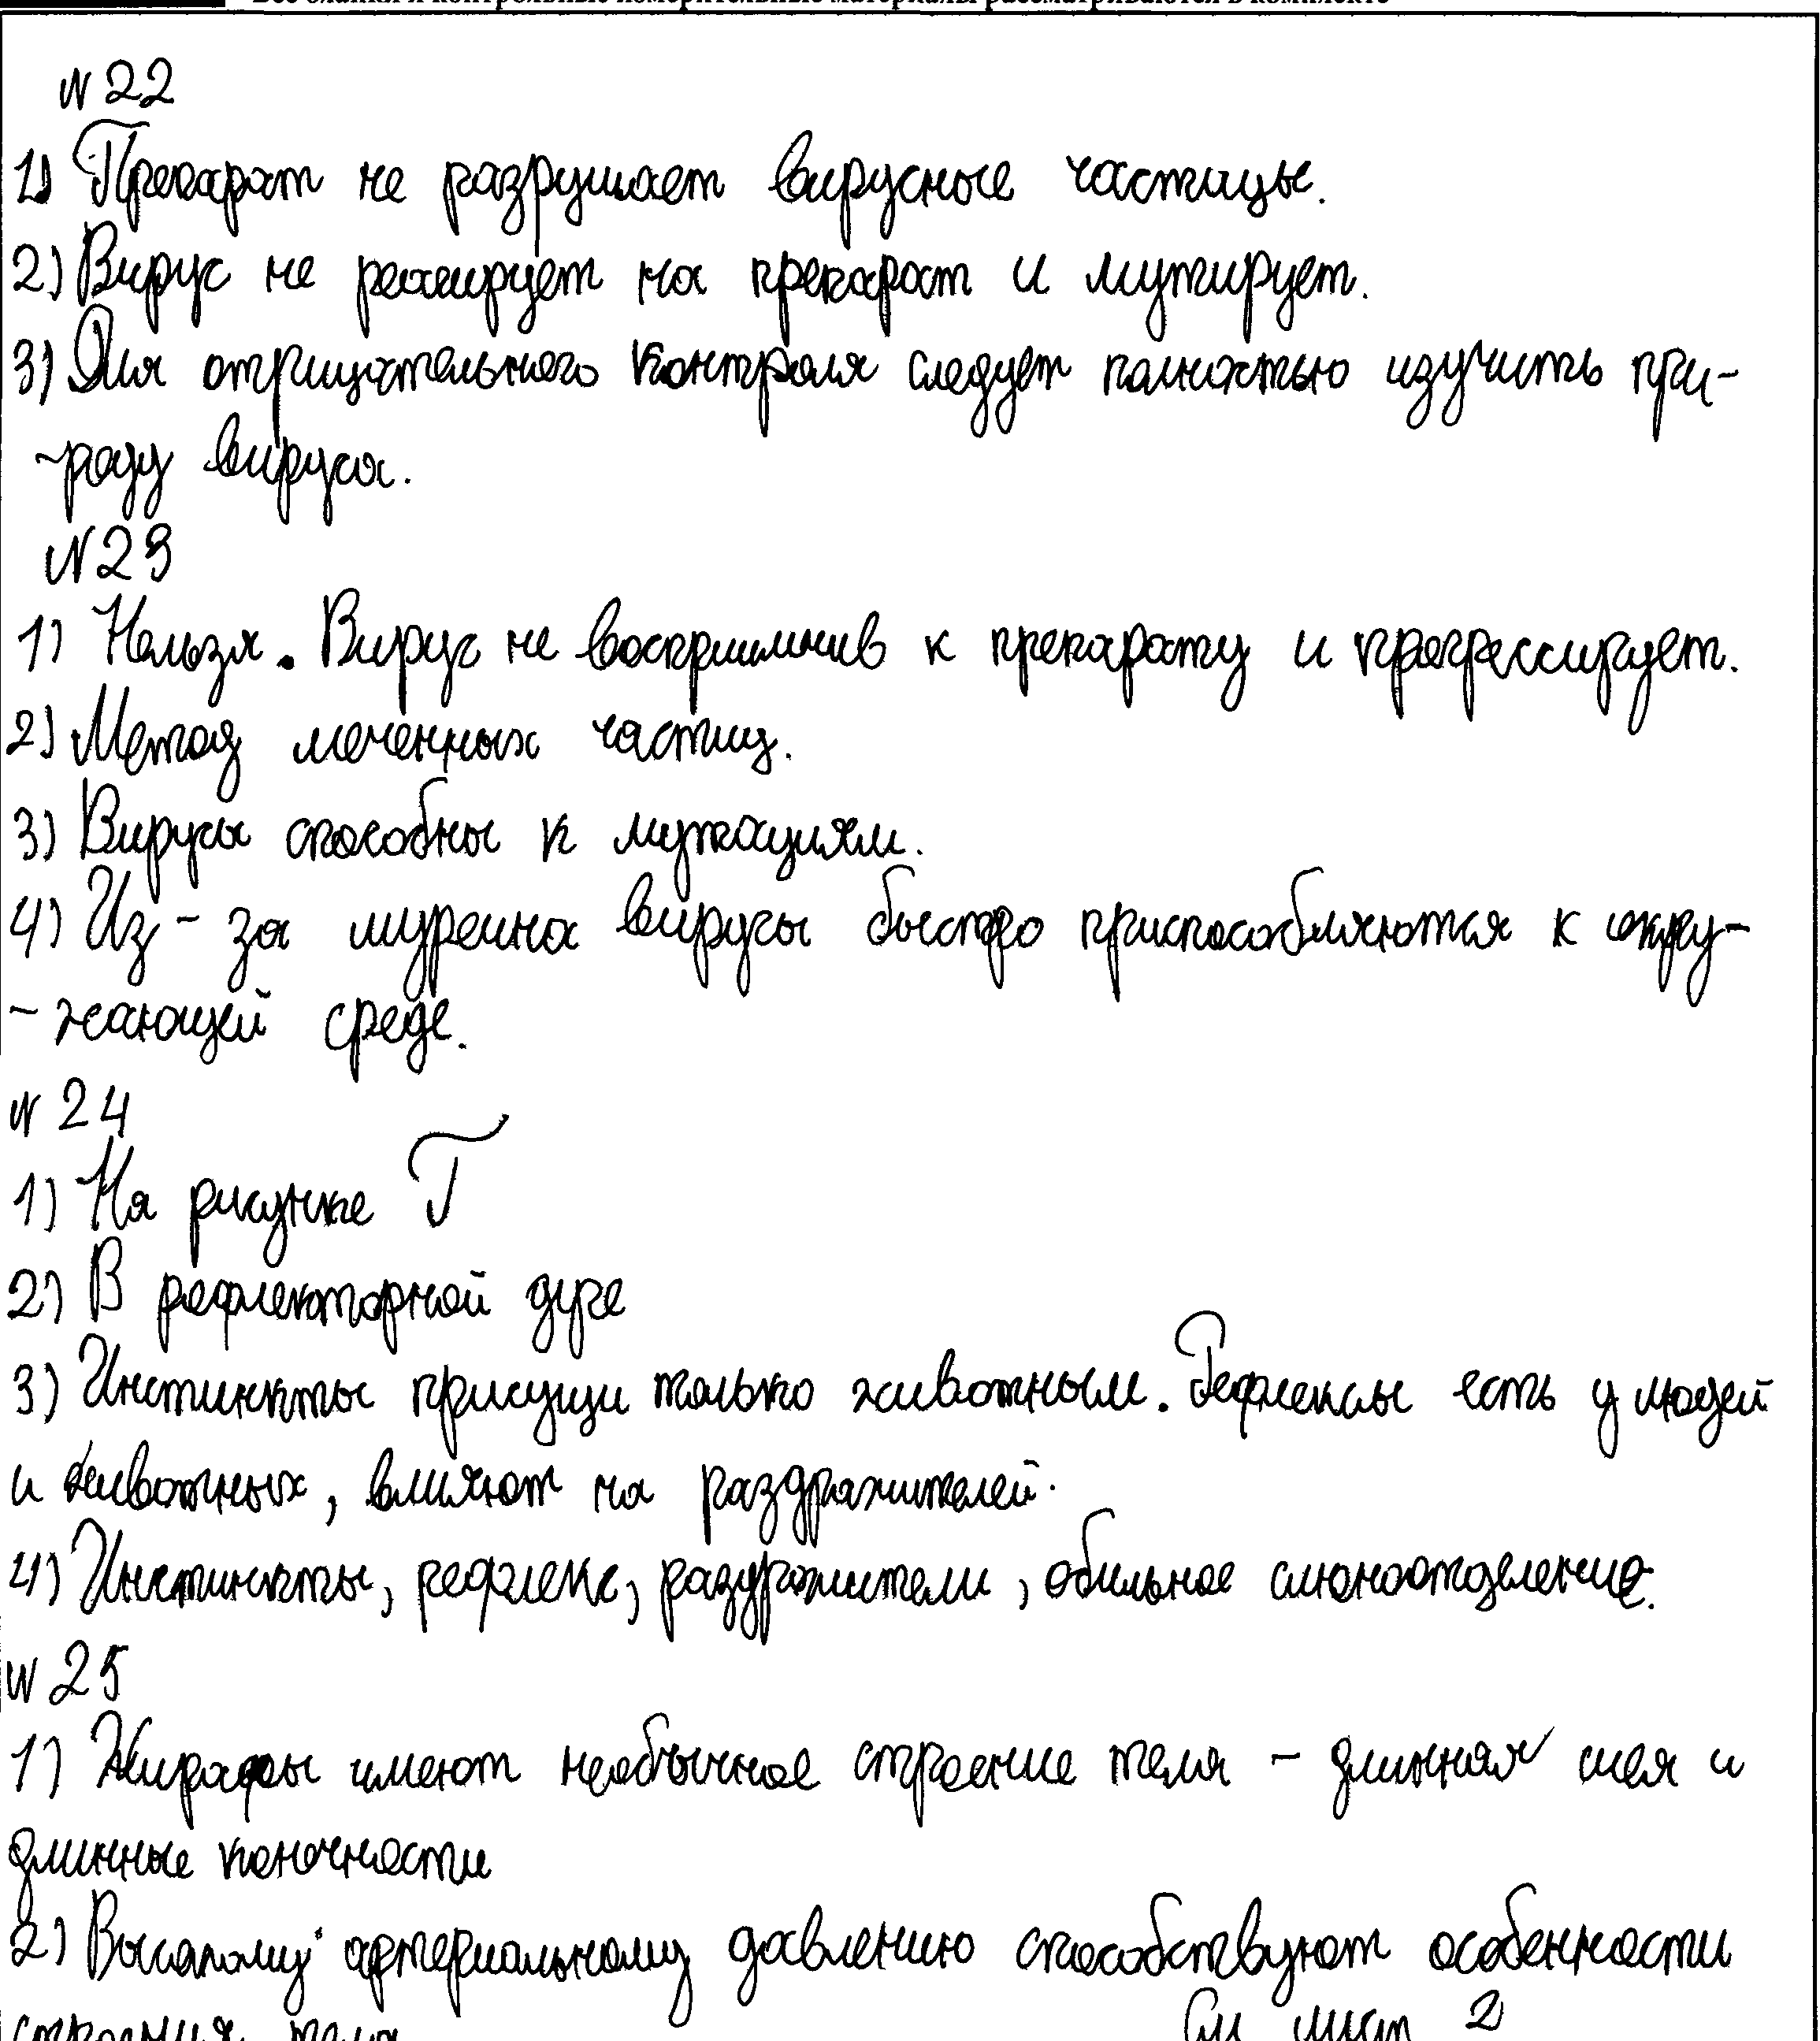 Все бланки и контрольные измерительные материалы рассматриваются в комплекте
№ 22
1) Препарат не разрушает вирусные частицы.
2) Вирус не реагирует на препарат и мутирует.
3) Для отрицательного контроля следует полностью изучить при-
-роду вируса.
№ 23
1) Нельзя. Вирус не восприимчив к препарату и прогрессирует.
2) Метод меченных частиц.
3) Вирусы способны к мутациям.
4) Из-за муреина вирусы быстро приспособляются к окру-
-жающей среде.
№ 24
1) На рисунке Г
2) В рефлекторной дуге
3) Инстинкты присущи только животным. Рефлексы есть у людей
и животных, влияют на раздражителей.
4) Инстинкты, рефлекс, раздражители, обильное слюноотделение.
№ 25
1) Жирафы имеют необычное строение тела - длинная шея и
длинные конечности
2) Высокому артериальному давлению способствуют особенности
строения тела См лист 2